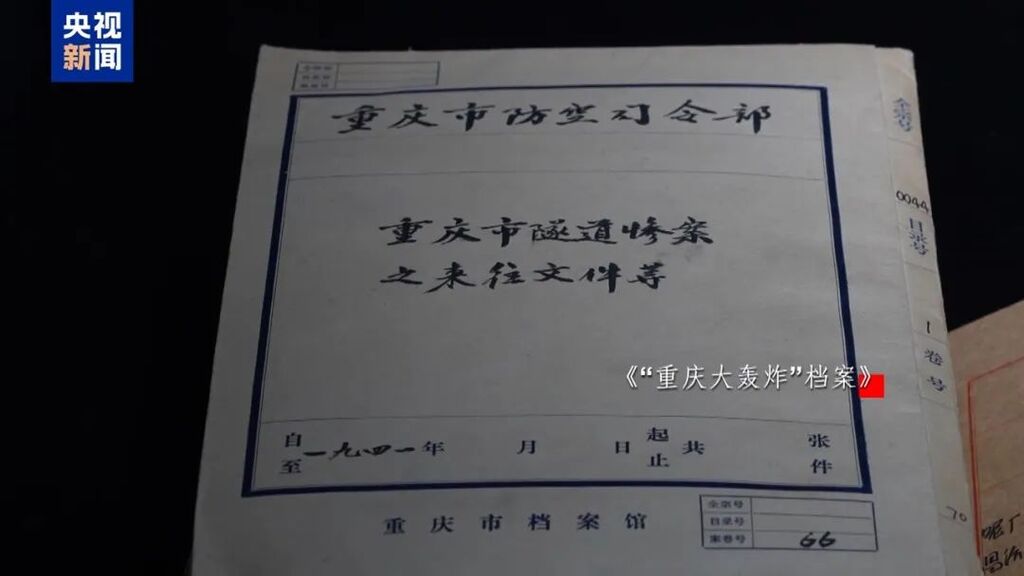 央视
新闻
重庆市防空司令部
重庆市隧道惨案
之来往文件等
《“重庆大轰炸”档案》
自 一九四一年 月 日 起 共 张
至 止 件
重庆市档案馆
全宗号
目录号
案卷号 66
全宗号
0044
目录号
1
卷号
70